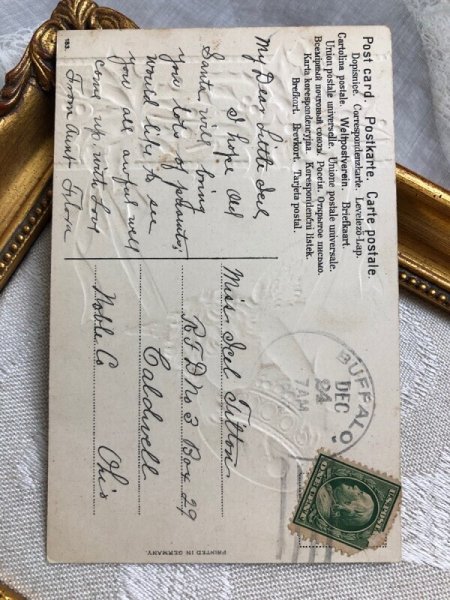 Post card. Postkarte. Carte postale.
Dopisnice. Correspondenzkarte. Levelező-Lap.
Cartolina postale. Weltpostverein. Briefkaart.
Union postale universelle. Unione postale universale.
Всемірный почтовый союзъ Россія. Открытое письмо.
Karta korespondencyjna. Korespondenční lístek.
Brefkort. Brevkort. Tarjeta postal.
My Dear Little Icel
I hope Old
Santa will bring
you lots of presents;
would like to see
you all awful well
come up with love
From Aunt Flora
BUFFALO
DEC
24
7 AM
O
Miss Icel Tilton
R.F.D No 3 Box 29
Caldwell
Noble Co Ohio
PRINTED IN GERMANY.
183.